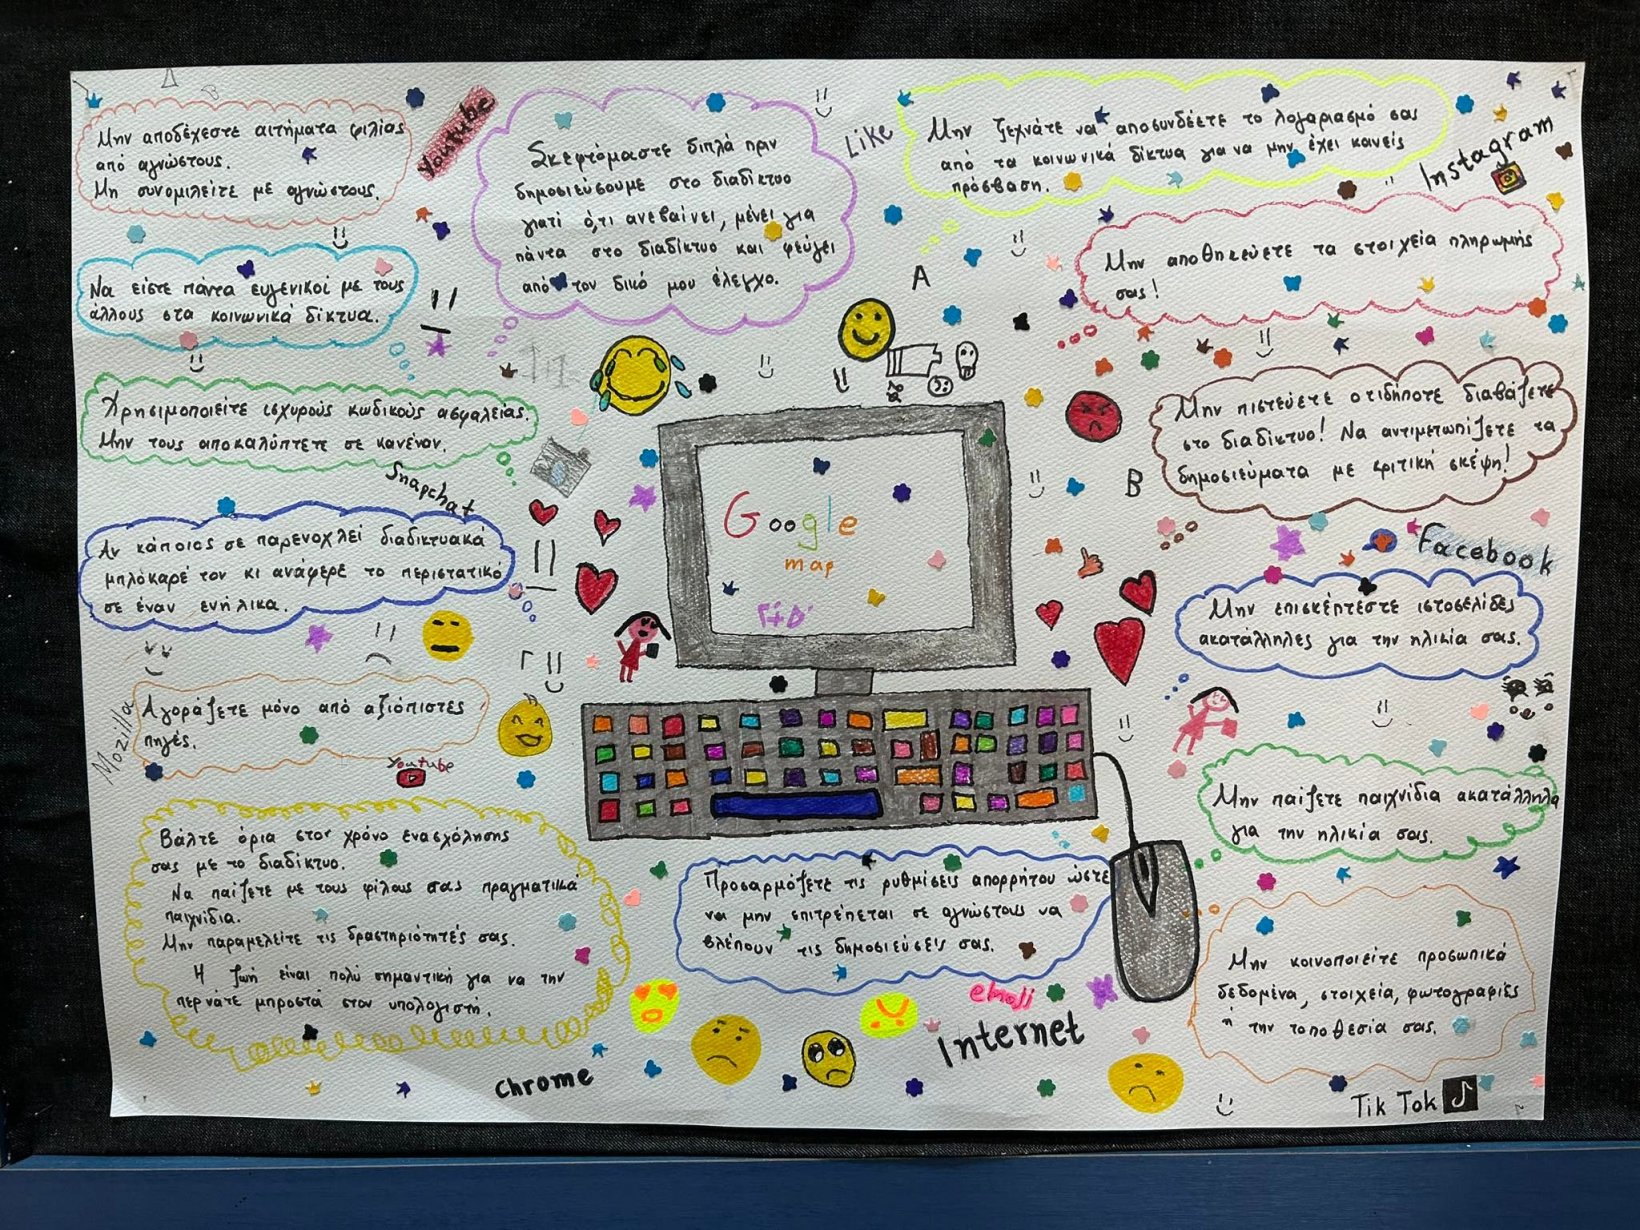 Μην αποδέχεστε αιτήματα φιλίας
από αγνώστους.
Μη συνομιλείτε με αγνώστους.
Youtube
Σκεφτόμαστε διπλά πριν
δημοσιεύσουμε στο διαδίκτυο
γιατί ό,τι ανεβαίνει, μένει για
πάντα στο διαδίκτυο και φεύγει
από τον δικό μου έλεγχο.
Like
Μην ξεχνάτε να αποσυνδέετε το λογαριασμό σας
από τα κοινωνικά δίκτυα για να μην έχει κανείς
πρόσβαση.
Instagram
Να είστε πάντα ευγενικοί με τους
άλλους στα κοινωνικά δίκτυα.
A
Μην αποθηκεύετε τα στοιχεία πληρωμής
σας!
Χρησιμοποιείτε ισχυρούς κωδικούς ασφαλείας.
Μην τους αποκαλύπτετε σε κανέναν.
Snapchat
Μην πιστεύετε οτιδήποτε διαβάζετε
στο διαδίκτυο! Να αντιμετωπίζετε τα
δημοσιεύματα με κριτική σκέψη!
B
Google
map
Αν κάποιος σε παρενοχλεί διαδικτυακά
μπλόκαρέ τον κι ανάφερε το περιστατικό
σε έναν ενήλικα.
Facebook
Μην επισκέπτεστε ιστοσελίδες
ακατάλληλες για την ηλικία σας.
Mozilla
Αγοράζετε μόνο από αξιόπιστες
πηγές.
Youtube
Μην παίζετε παιχνίδια ακατάλληλα
για την ηλικία σας.
Βάλτε όρια στον χρόνο ενασχόλησης
σας με το διαδίκτυο.
Να παίζετε με τους φίλους σας πραγματικά
παιχνίδια.
Μην παραμελείτε τις δραστηριότητές σας.
Η ζωή είναι πολύ σημαντική για να την
περνάτε μπροστά στον υπολογιστή.
Προσαρμόζετε τις ρυθμίσεις απορρήτου ώστε
να μην επιτρέπεται σε αγνώστους να
βλέπουν τις δημοσιεύσεις σας.
Μην κοινοποιείτε προσωπικά
δεδομένα, στοιχεία, φωτογραφίες
ή την τοποθεσία σας.
emoji
Internet
chrome
Tik Tok